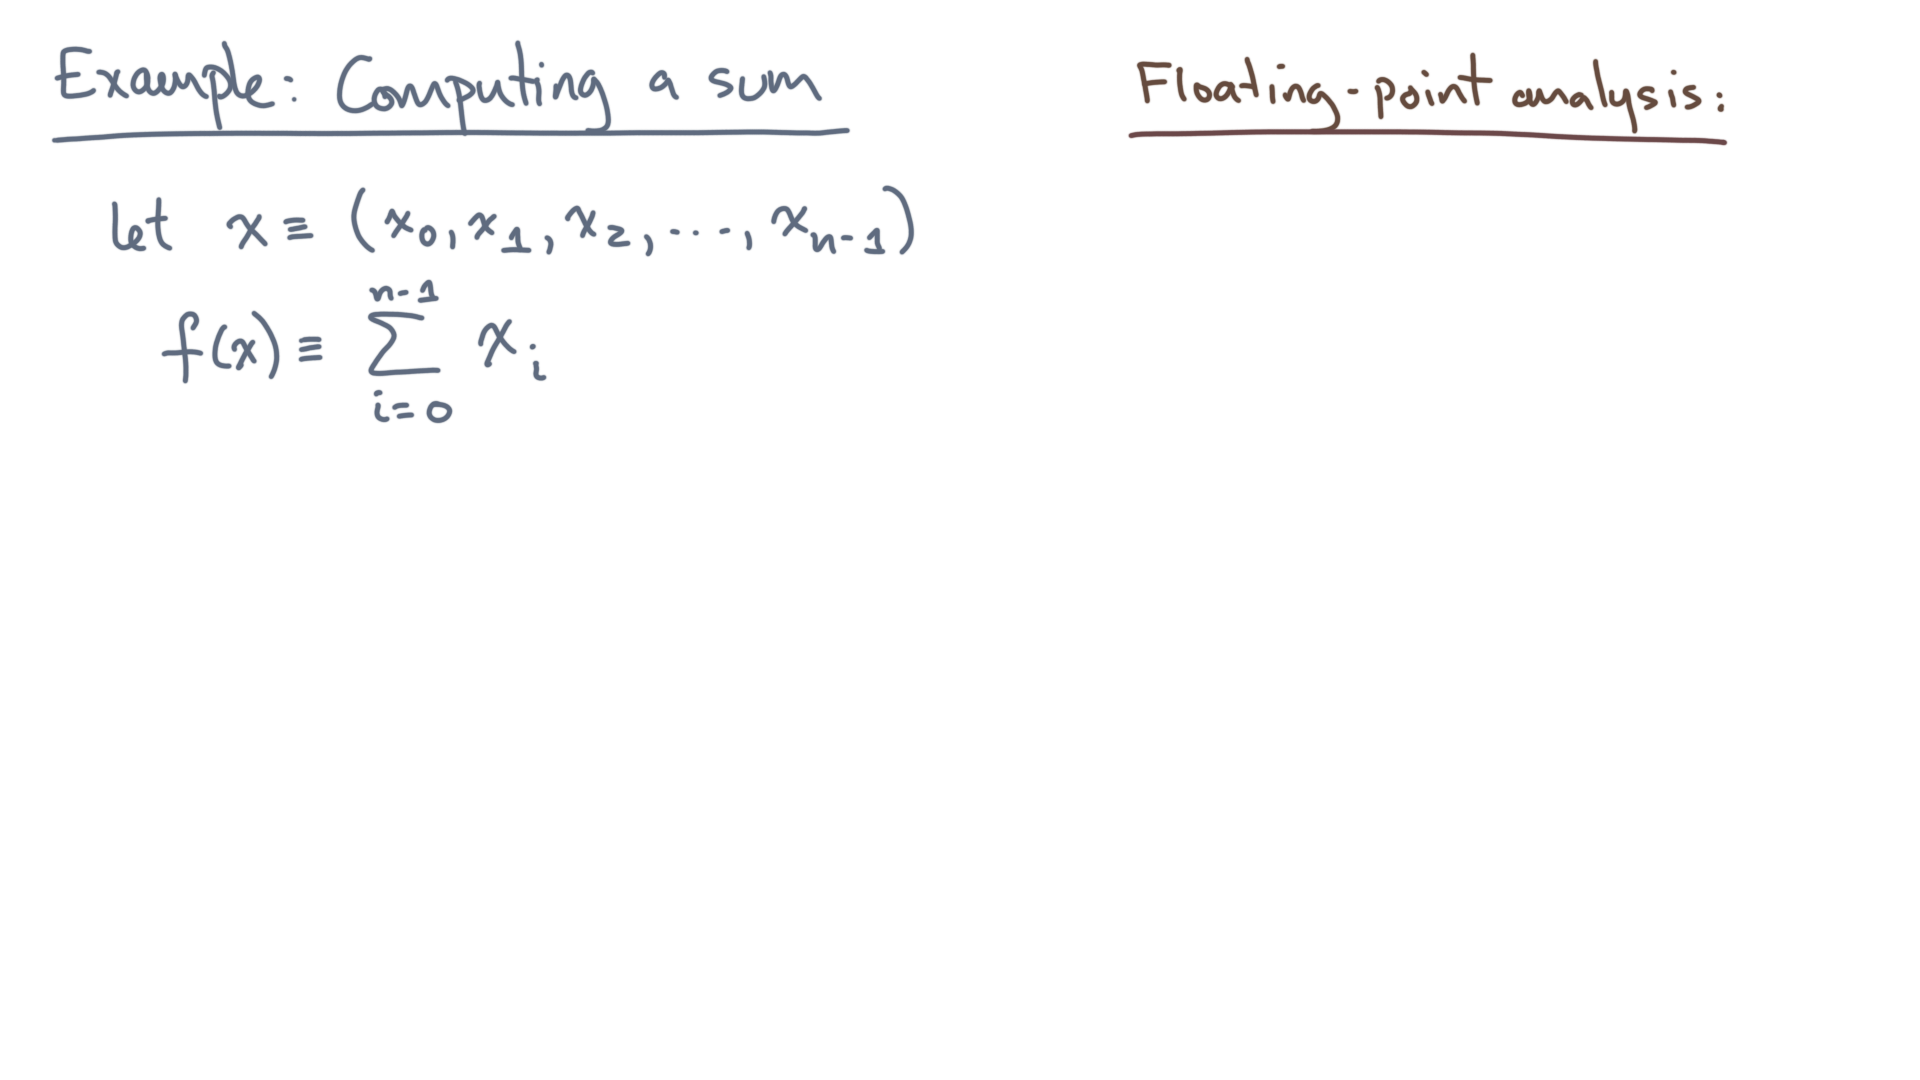 Example: Computing a sum
let x ≡ (x₀, x₁, x₂, ..., xₙ₋₁)
f(x) ≡ ∑ᵢ₌₀ⁿ⁻¹ xᵢ
Floating-point analysis: